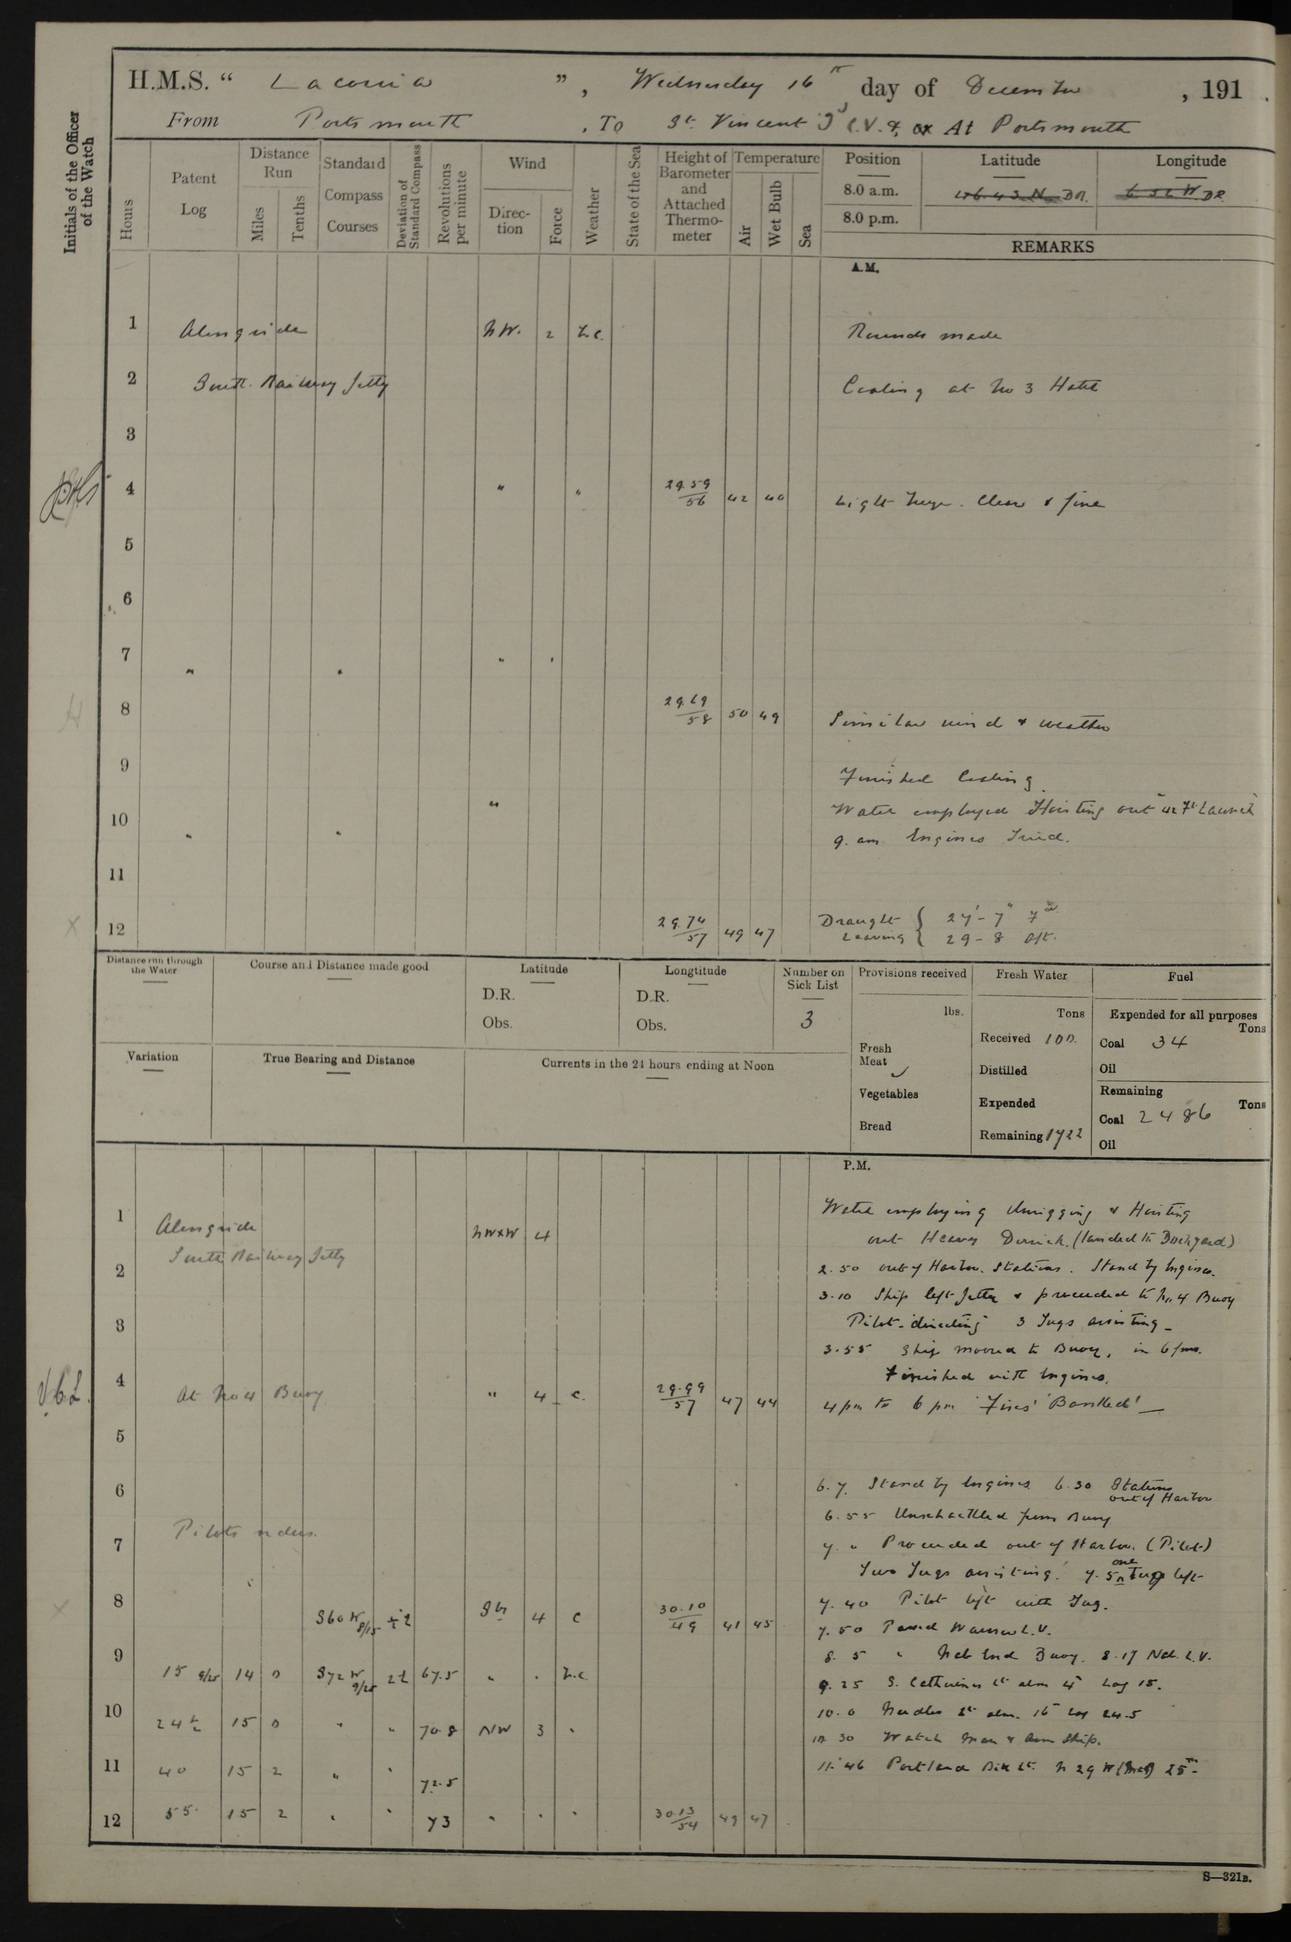 H.M.S. “ Laconia ”, Wednesday 16th day of December, 191 .
From Portsmouth, To St. Vincent I C.V. &, or At Portsmouth
Initials of the Officer of the Watch
Hours
Patent Log
Distance Run
Miles
Tenths
Standard Compass Courses
Deviation of Standard Compass
Revolutions per minute
Wind
Direction
Force
Weather
State of the Sea
Height of Barometer and Attached Thermometer
Temperature
Air
Wet Bulb
Sea
Position Latitude Longitude
8.0 a.m. DR. DR
8.0 p.m.
REMARKS
A.M.
1 Alongside NW. 2 b.c. Rounds made
2 South Railway Jetty Coaling at No 3 Hatch
3
4 " " 29.59/56 42 40 Light airs. Clear & fine
5
6
7 " " " '
8 29.69/58 50 49 Similar wind & weather
9 Finished Coaling
10 " " " Watch employed Hoisting out 42 Ft Launch
9. am Engines Tried.
11
12 29.74/57 49 47 Draught Leaving { 27'-7" Fd
29-8 Aft.
Distance run through the Water
Course and Distance made good
Latitude
D.R.
Obs.
Longtitude
D.R.
Obs.
Number on Sick List
3
Provisions received
lbs.
Fresh Meat
Vegetables
Bread
Fresh Water
Tons
Received 100
Distilled
Expended
Remaining 1722
Fuel
Expended for all purposes
Tons
Coal 34
Oil
Remaining
Tons
Coal 2486
Oil
Variation
True Bearing and Distance
Currents in the 24 hours ending at Noon
P.M.
1 Alongside NWxW 4 Watch employing Unrigging & Hoisting
South Railway Jetty out Heavy Derrick. (landed to Dockyard)
2 2.50 out of Harbor Stations. Stand by Engines.
3.10 Ship left Jetty & proceeded to No 4 Buoy
3 Pilot directing 3 Tugs assisting
3.55 Ship moored to Buoy, in 6 fms.
Finished with Engines.
4 At No 4 Buoy " 4 c. 29.99/57 47 44 4 pm to 6 pm Fires 'Banked'
5
6 6.7. Stand by Engines 6.30 Stations out of Harbor
6.55 Unschackled from Buoy
7 Pilots orders. 7. " Proceeded out of Harbor. (Pilot)
Two Tugs assisting. 7.5 one Tug left
8 S60W 8/15 +2 4 c 30.10/49 41 45 7.40 Pilot left with Tug.
7.50 Passed Warner L.V.
9 15 9/25 14 0 S72W 9/25 67.5 " . b.c 8. 5 " Nab End Buoy. 8.17 Nab L.V.
9.25 S. Catherines Lt abm 4' Log 15.
10 24½ 15 0 " " 70.8 NW 3 " 10.0 Needles Lt abm. 16' Log 24.5
10 30 Watch Man & Arm Ship.
11 40 15 2 " ' 72.5 11.46 Portland Bill Lt. N 29 W (Mag) 25m
12 55 15 2 " ' 73 " " " 30.13/54 49 47
V.C.L.
S—321B.